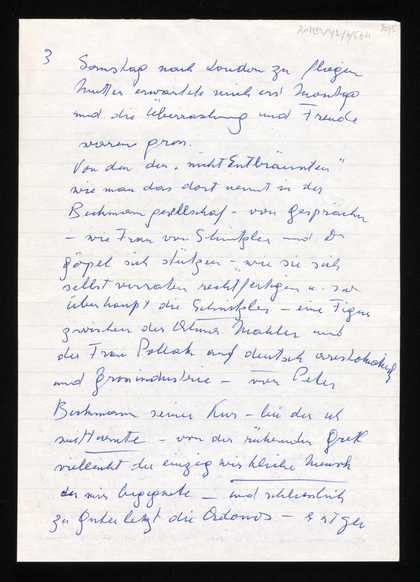 3
Samstag nach London zu fliegen
Mutter erwartete mich erst Montag
und die Überraschung und Freude
waren gross.
Von den den "nicht Entbräunten"
wie man das dort nennt in der
Beckmann gesellschaft - von Gesprächen
- wie Frau von Schnitzler und Dr
Göpel sich stützen - wie sie sich
selbst verraten rechtfertigen u.
überhaupt die Schnitzler - eine Figur
zwischen der Alma Mahler und
der Frau Pollak auf deutsch
und Grossindustrie - von Peter
Beckmann seiner Kur - bei der ich
- von der rührenden
vielleicht der einzig wirkliche Mensch
der mir begegnete - und schliesslich
zu guter letzt die Adornos -